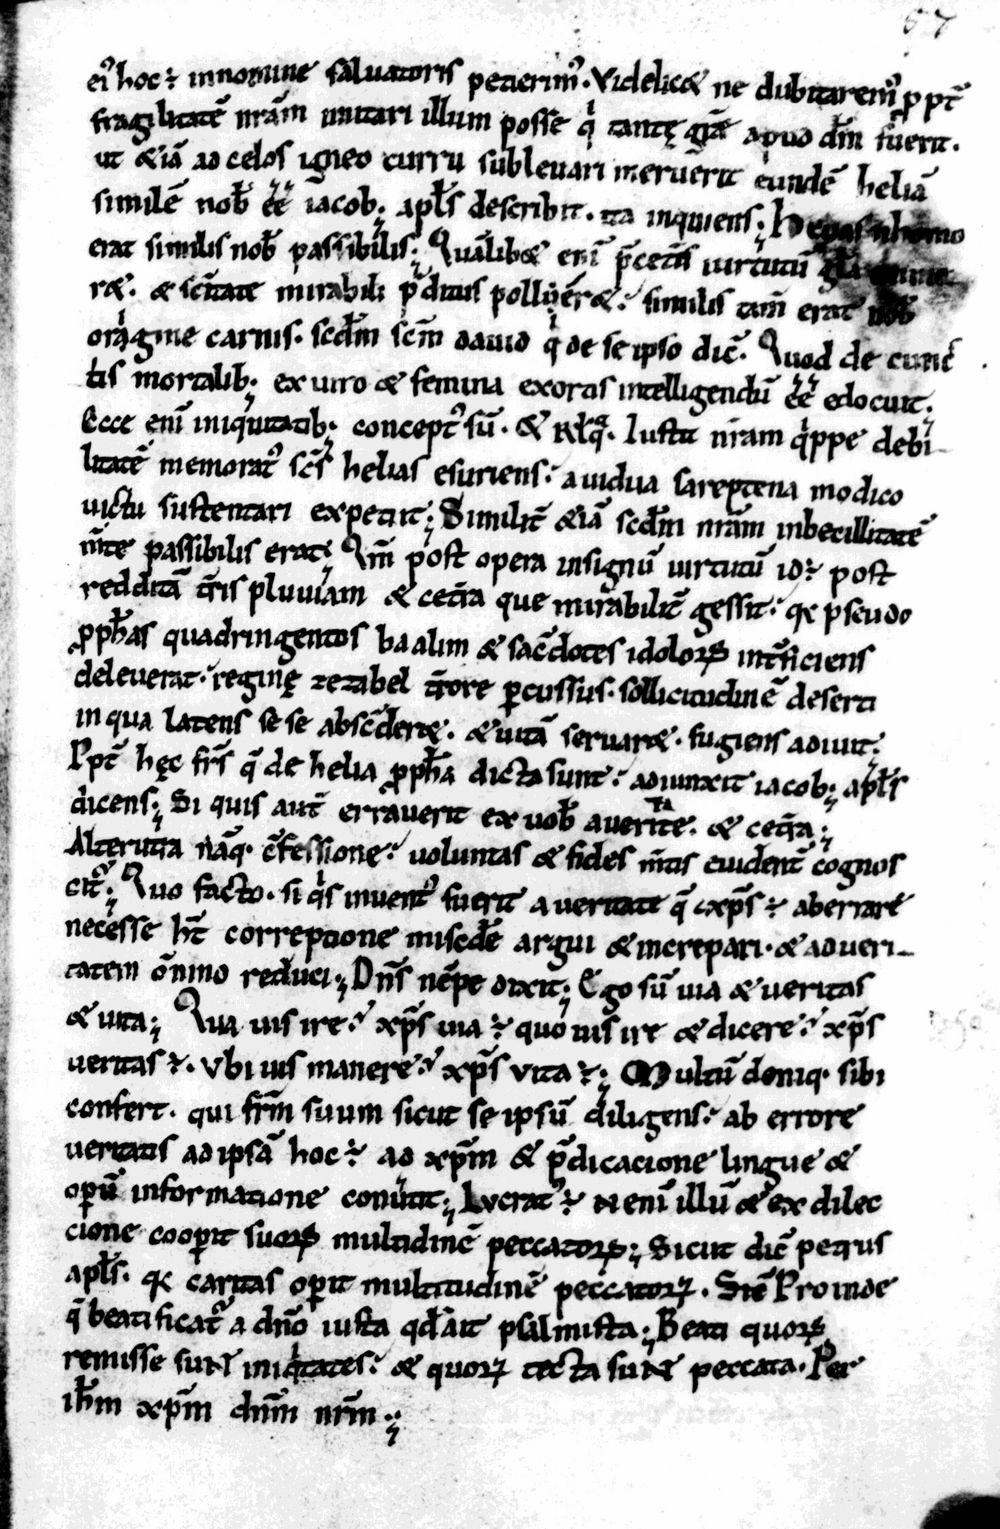 57
ei᷒ hoc÷ in nomine saluatoris petierim᷒. Videlicet ne dubitarem᷒ ꝓpt̄
fragilitatē nr̄am imitari illum posse qͥ tantę gr̄e apud dm̄ fuerit.
ut & iā ad celos igneo curru subleuari meruerit eundē heliā
similē nob̄ ee̅ iacob; apl̄s describit. ita inquiens; Helyas homo
erat similis nob̄ passibilis; Qualibet eni᷒ p̄cetis uirtutū gl̄a
ret. & sc̄itate mirabili p̄ditus polleret. similis tam̄ erat nob̄
origine carnis. scd̄m sc̄m dauid qͥ de se ipso dic̄. Quod de cunc
tis mortalib; ex uiro & femina exortis intelligendū ee̅ edocuit.
Ecce eni᷒ iniquitatib; concept᷒ sū. & rl̄q̄. Iusta nr̄am qͥppe debi
litatē memorat᷒ sc̄s helias esuriens. a uidua sareptena modico
uictu sustentari expetiit; Similit̄ & iā scd̄m nr̄am inbecillitatē
m̄te passibilis erat; Qm̄ post opera insignū uirtutū id÷ post
redditā t̄ris pluuiam & cet̄a que mirabilit̄ gessit. qͥ pseudo
ꝓph̄as quadringentos baalim & sac̄dotes idoloꝝ int̄ficiens
deleuerat. reginę iezabel t̄rore ꝑcussus. sollicitudinē deserti
in qua latens se se absc̄deret. & uitā seruaret. fugiens adiuit;
Ppt̄ hęc fr̄s q̄ de helia ꝓph̄a dicta sunt. adiunxit iacob; apl̄s
dicens; Si quis aut̄ errauerit ex uob̄ a ueritate. & cet̄a;
Alterutra nāq. c̄fessione. uoluntas & fides m̄tis euident̄ cognos
cit᷒; Quo facto. si qͥs inuent᷒ fuerit a ueritate q̄ xp̄s ÷ aberrare
necesse h̄t correptione miscd̄e argui & increpari. & ad ueri
tatem ōnino reduci; Dn̄s nēpe dixit; Ego sū uia & ueritas
& uita; Qua uis ire. xp̄s uia ÷ quo uis ire & dicere. xp̄s
ueritas ÷. Vbi uis manere. xp̄s vita ÷; Multū deniq. sibi
confert. qui fr̄m suum sicut se ipsū diligens. ab errore
ueritatis ad ipsā hoc÷ ad xp̄m & p̄dicacione lingue &
oꝑū informatione conūtit; Lucrat᷒ ÷ N eni᷒ illū & ex dilec
cione cooꝑit suoꝝ multidinē peccatoꝝ; Sicut dic̄ petrus
apl̄s. qͥ caritas oꝑit multitudinē peccatoꝝ. Proinde
q̄ beatificat᷒ a dn̄o iusta qd̄ ait psalmista; Beati quoꝝ
remisse sunt iniqͥtates. & quoꝝ tecta sunt peccata. Per
ih̄m xp̄m dn̄m nr̄m;